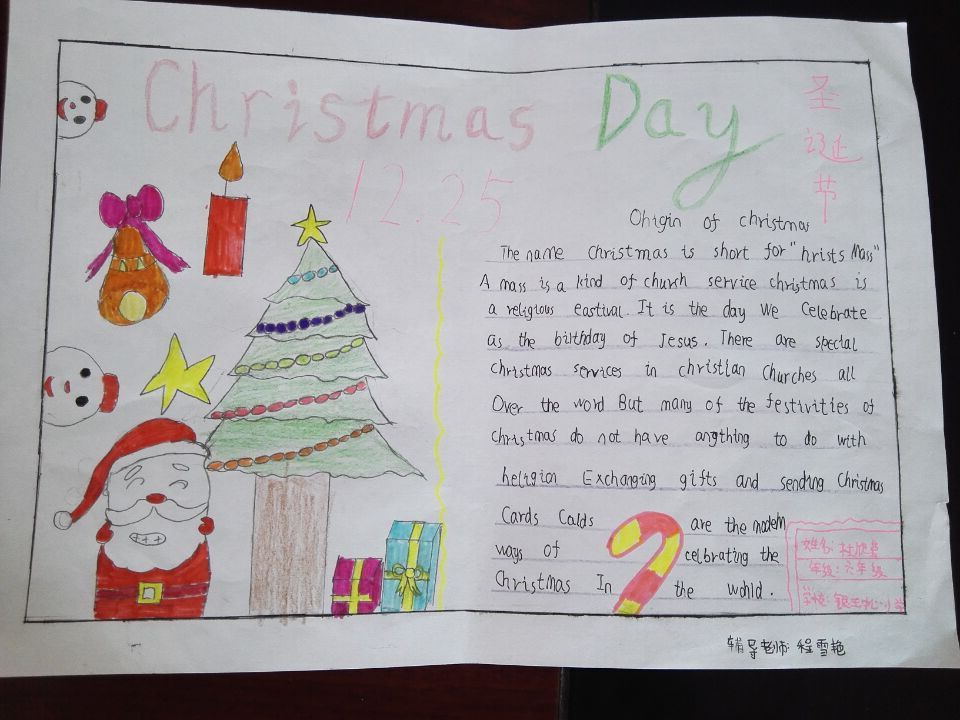 Christmas Day
圣诞节
12.25
Ohigin of christmas
The name christmas is short for "hrists Mass"
A mass is a kind of church service christmas is
a religious eastival. It is the day we celebrate
as the birthday of Jesus. There are special
christmas services in christian churches all
Over the word But many of the festivities of
christmas do not have angthing to do with
heligion Exchanging gifts and sending Christmas
Cards Calds are the modem
ways of celbrating the
Christmas In the wohld.
姓名:
年级:六年级
学校:银王中心小学
辅导老师:程雪艳